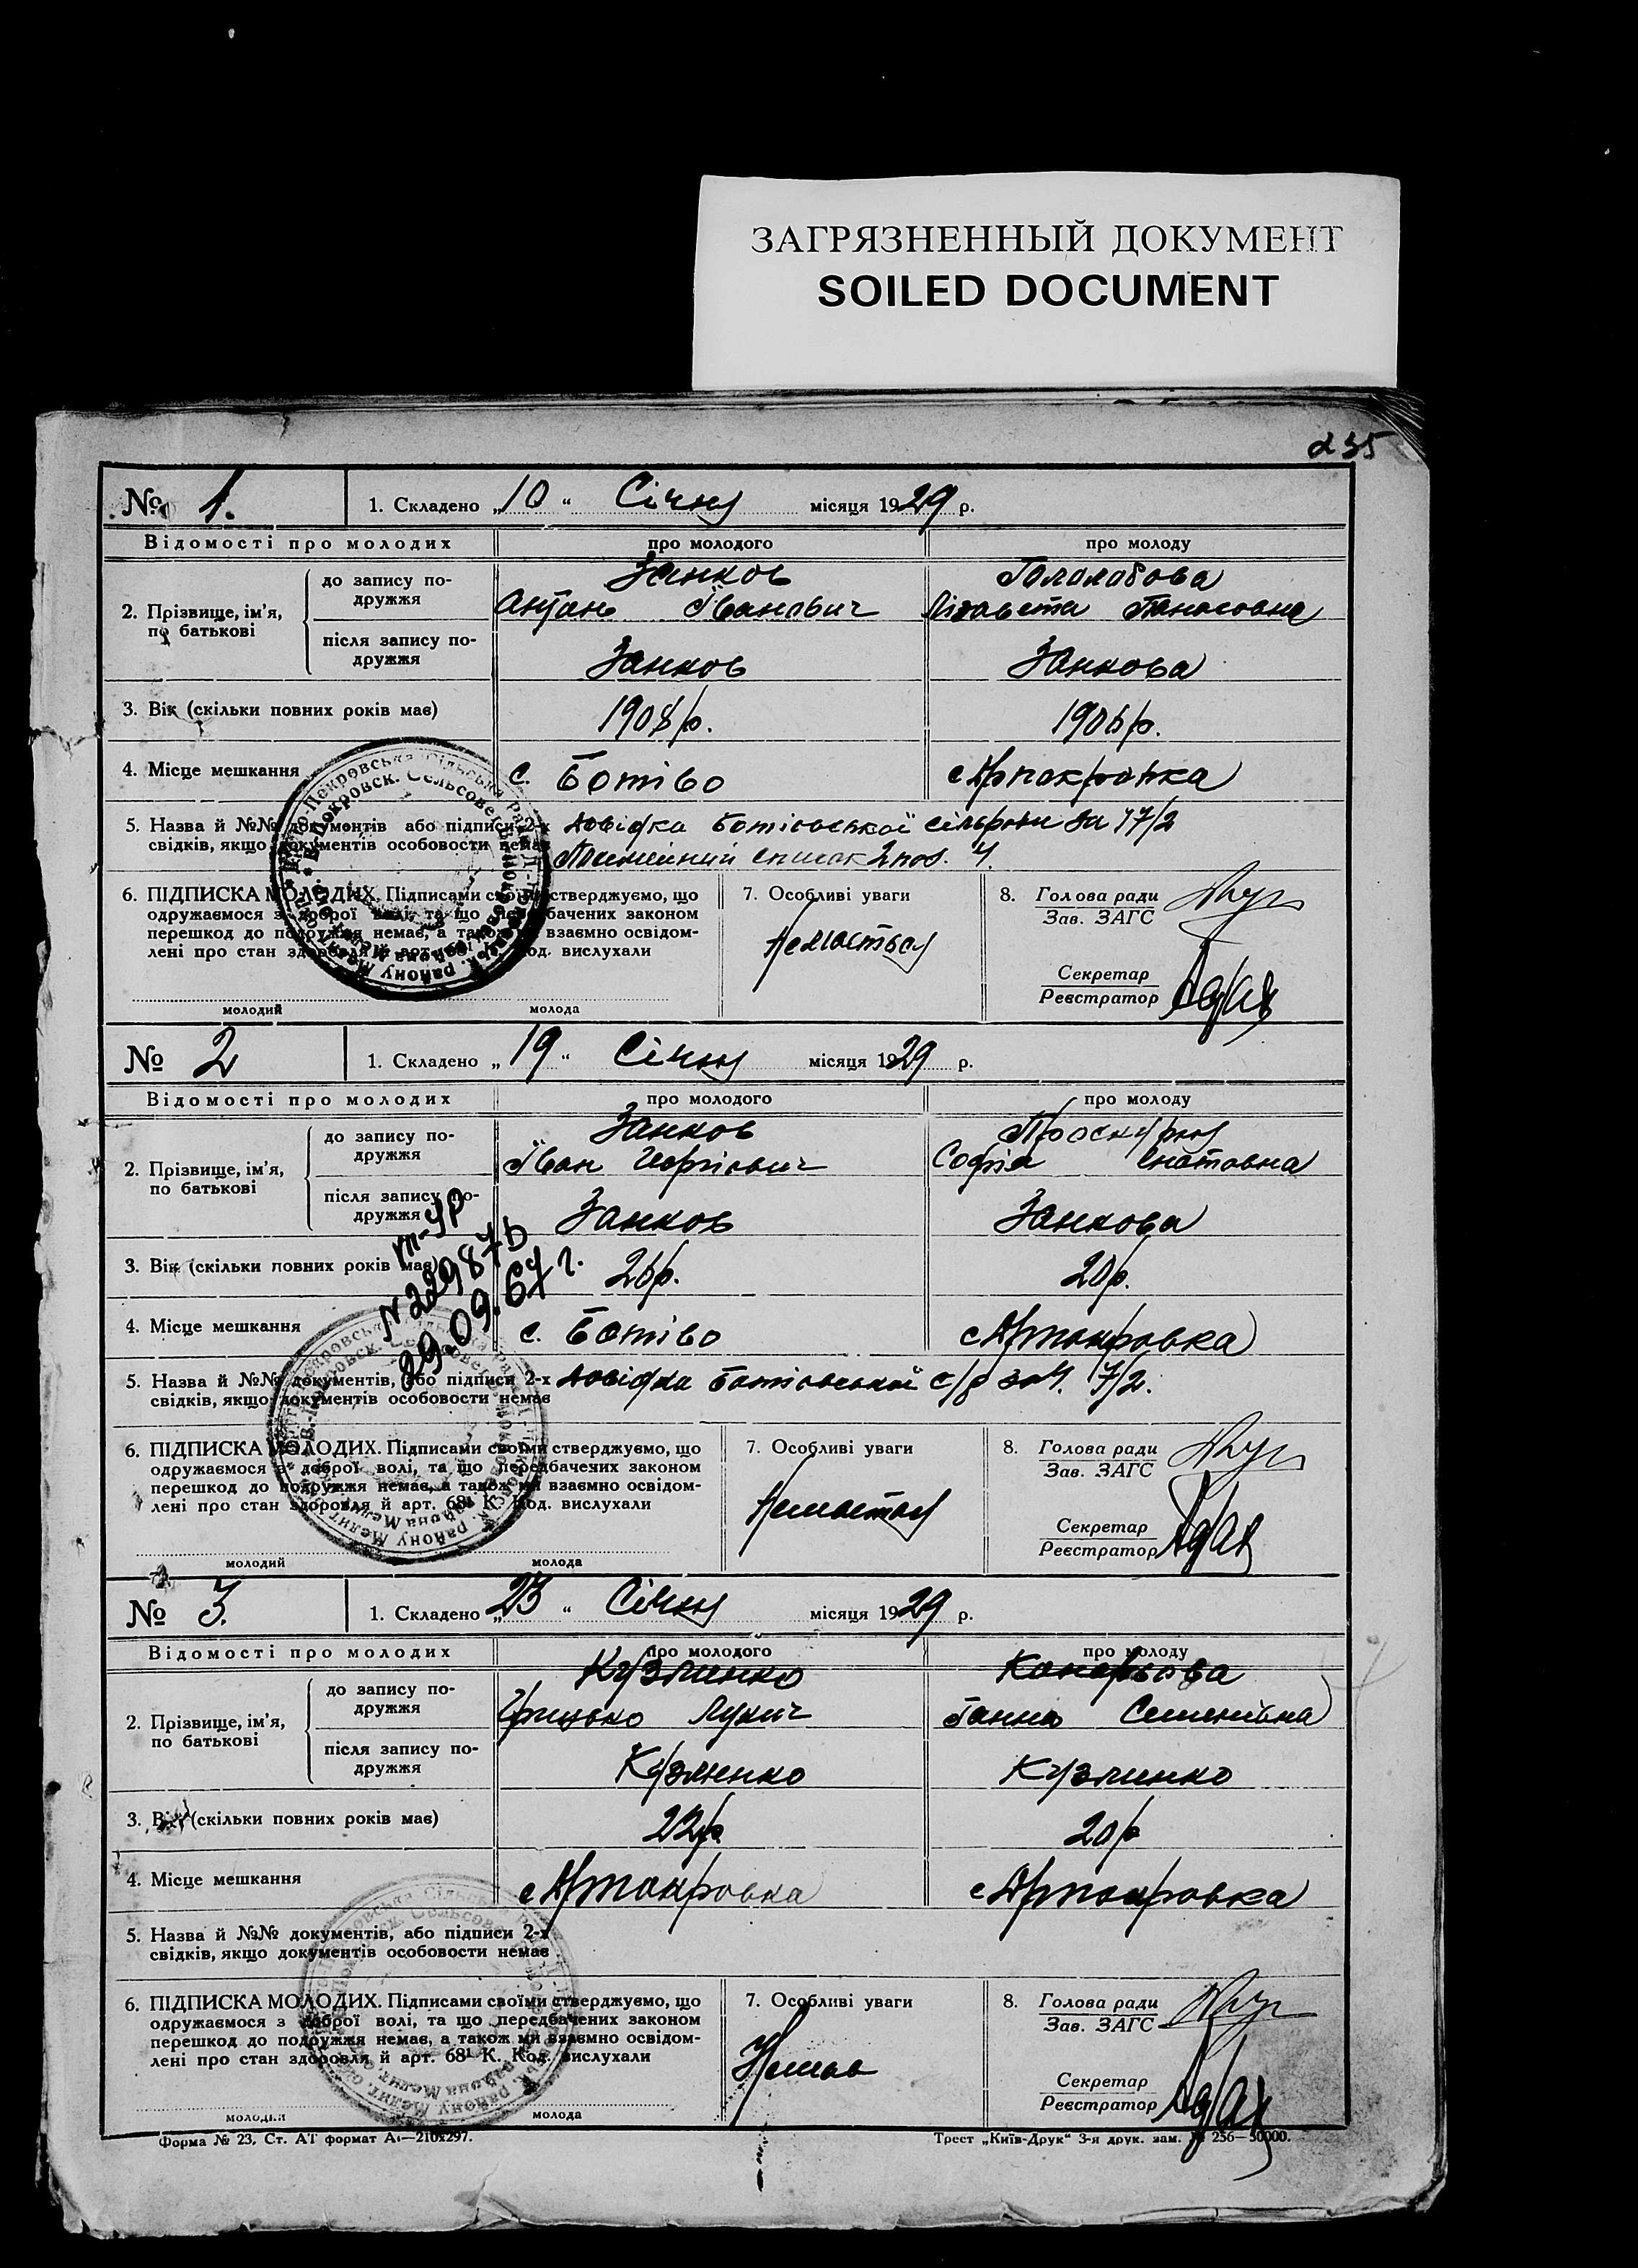 ЗАГРЯЗНЕННЫЙ ДОКУМЕНТ
SOILED DOCUMENT
235
№ 1. 1. Складено „10“ Січня місяця 1929 р.
Відомості про молодих про молодого про молоду
2. Прізвище, ім'я, по батькові
до запису по-
дружжя
Занков
Антон Іванович
Гололобова
Лізавета Панасовна
після запису по-
дружжя
Занков Занкова
3. Вік (скільки повних років має) 1908 р. 1906 р.
4. Місце мешкання с. Ботіво
5. Назва й №№ документів або підписи 2-х Довідка Ботієвської сільради за 17/2
свідків, якщо документів особовости немає список
6. ПІДПИСКА МОЛОДИХ. Підписами своїми стверджуємо, що
одружаємося з доброї волі, та що передбачених законом
перешкод до подружжя немає, а також ми взаємно освідом-
лені про стан здоровля й арт. Код. вислухали
молодий молода
7. Особливі уваги
8. Голова ради
Зав. ЗАГС
Секретар
Реєстратор
№ 2 1. Складено „19“ Січня місяця 1929 р.
Відомості про молодих про молодого про молоду
2. Прізвище, ім'я,
по батькові
до запису по-
дружжя
Занков
Іван
Проскурня
Софія Гнатовна
після запису по-
дружжя
Занков Занкова
3. Вік (скільки повних років має) 26 р. 20 р.
N 229876
29.09.67 г.
4. Місце мешкання с. Ботіво
5. Назва й №№ документів, або підписи 2-х Довідка Ботієвської с/р за Ч. 7/2.
свідків, якщо документів особовости немає
6. ПІДПИСКА МОЛОДИХ. Підписами своїми стверджуємо, що
одружаємося з доброї волі, та що передбачених законом
перешкод до подружжя немає, а також ми взаємно освідом-
лені про стан здоровля й арт. 68¹ К. Код. вислухали
молодий молода
7. Особливі уваги
8. Голова ради
Зав. ЗАГС
Секретар
Реєстратор
№ 3. 1. Складено „23“ Січня місяця 1929 р.
Відомості про молодих про молодого про молоду
2. Прізвище, ім'я,
по батькові
до запису по-
дружжя
Кузменко
Грицько Лукич
Канарьова
Ганна Семенівна
після запису по-
дружжя
Кузменко Кузменко
3. Вік (скільки повних років має) 22 р 20 р
4. Місце мешкання
5. Назва й №№ документів, або підписи 2-х
свідків, якщо документів особовости немає
6. ПІДПИСКА МОЛОДИХ. Підписами своїми стверджуємо, що
одружаємося з доброї волі, та що передбачених законом
перешкод до подружжя немає, а також ми взаємно освідом-
лені про стан здоровля й арт. 68¹ К. Код. вислухали
молодий молода
7. Особливі уваги
Немає
8. Голова ради
Зав. ЗАГС
Секретар
Реєстратор
Форма № 23, Ст. АТ формат А₄—210x297.
Трест „Київ-Друк“ 3-я друк. зам. № 256—50000.